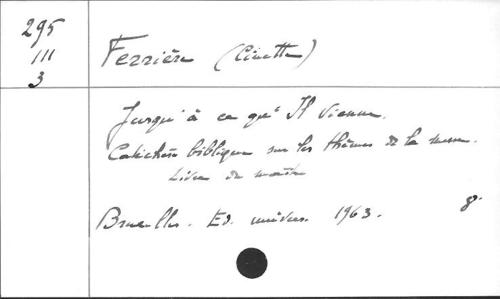 295
III
3
Ferrière (Cinette)
Jusqu'à ce qu'Il vienne.
Catéchèse biblique sur les thèmes de la messe.
Livre du maître
Bruxelles. Ed. univers. 1963. 8°.